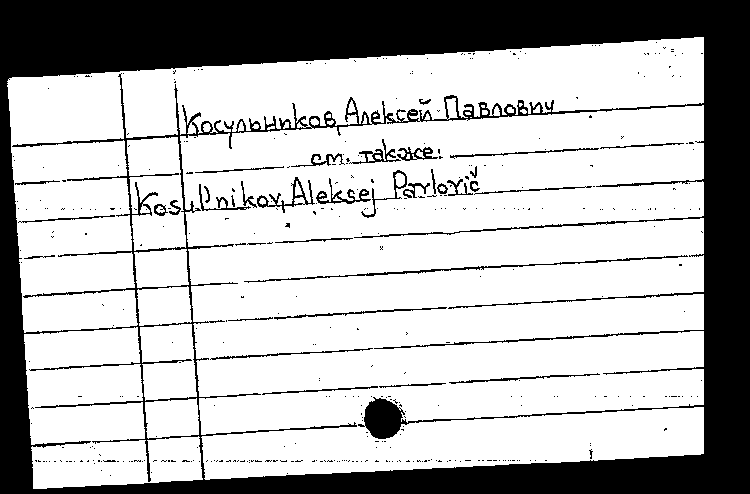 Косульников, Алексей Павлович
см. также:
Kosul'nikov, Aleksej Pavlovič